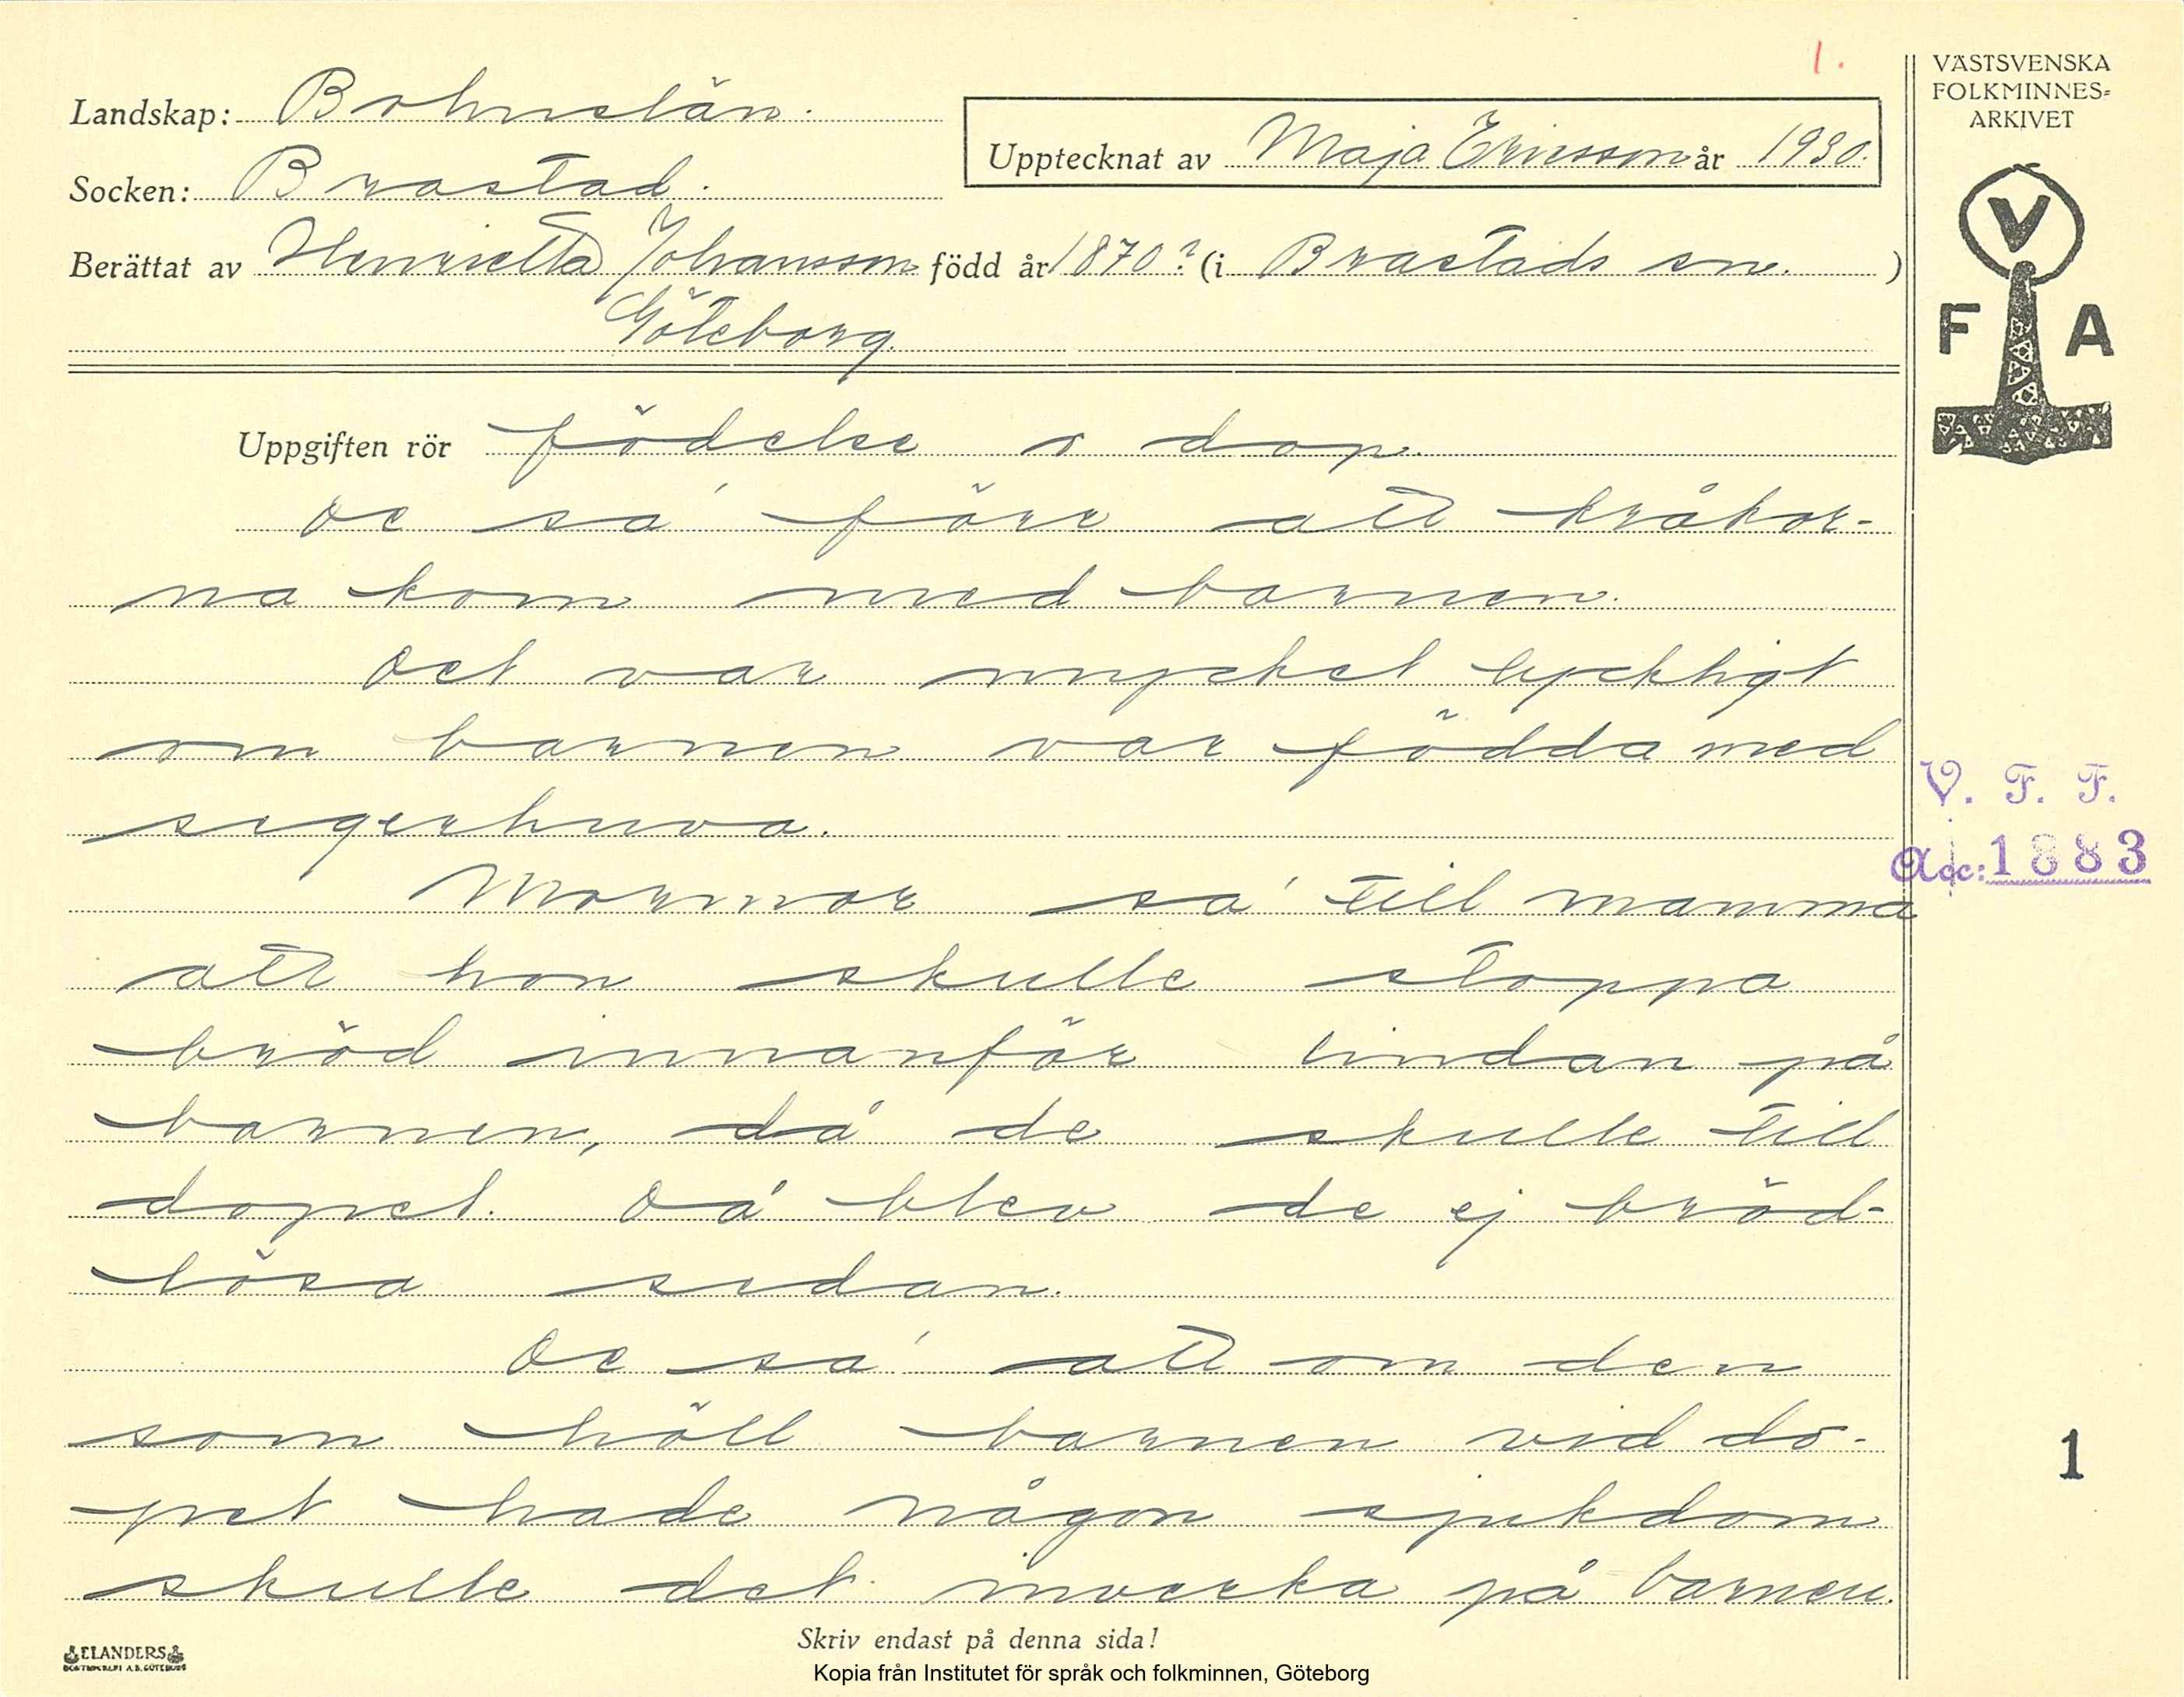 1.
Landskap: Bohuslän.
Socken: Brastad.
Upptecknat av Maja Ericsson år 1930.
Berättat av Henrietta Johansson född år 1870? (i Brastads sn. )
Göteborg.
Uppgiften rör födelse o dop.
De sa' förr att kråkor-
na kom med barnen.
Det var mycket lyckligt
om barnen var födda med
segerhuva.
Mormor sa' till mamma
att hon skulle stoppa
bröd innanför lindan på
barnen, då de skulle till
dopet. Då blev de ej bröd-
lösa sedan.
De sa' att om den
som höll barnen vid do-
pet hade någon sjukdom
skulle det inverka på barnen.
Skriv endast på denna sida!
VÄSTSVENSKA
FOLKMINNES-
ARKIVET
V
F A
V. F. F.
Acc: 1883
1
ELANDERS
BOKTRYCKERI A.B. GÖTEBORG
Kopia från Institutet för språk och folkminnen, Göteborg